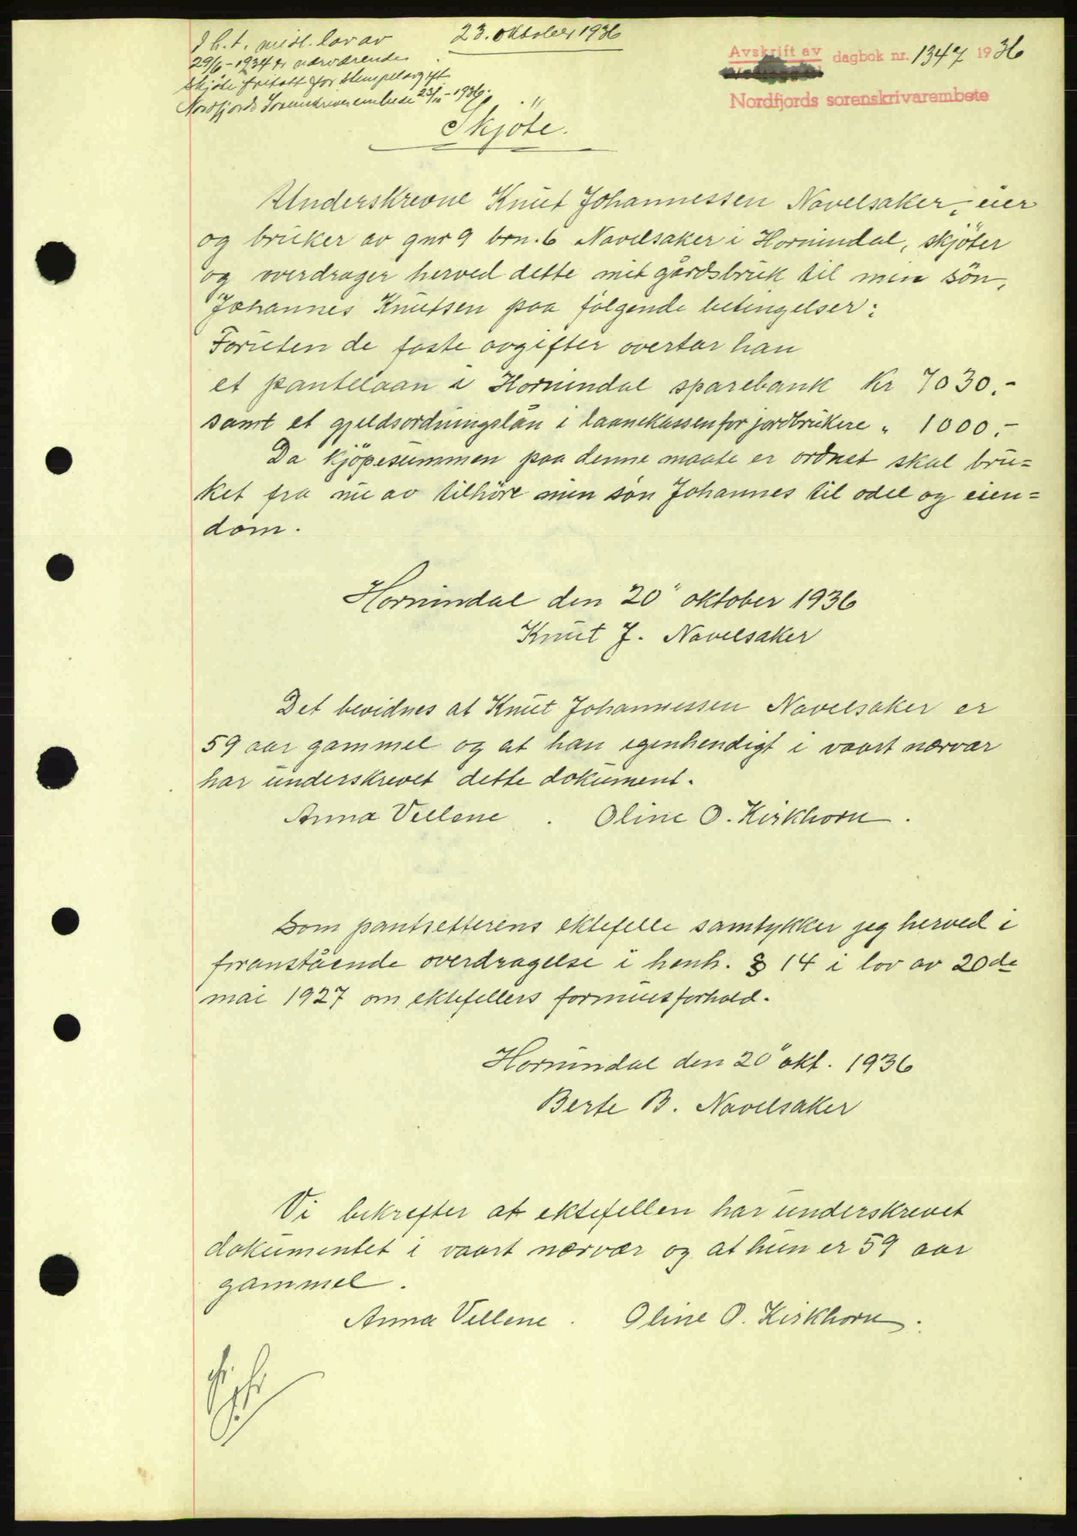 I h.t. midl. lov av
29/6-1934 er nærværende
skjøte fritatt for stempelavgift
Nordfjord Sorenskriverembede 23/10-1936.
23. oktober 1936
Avskrift av dagbok nr. 1347 1936
Nordfjords sorenskrivarembete
Skjöte.
Underskrevne Knut Johannessen Navelsaker, eier
og bruker av gnr 9 brn. 6 Navelsaker i Hornindal, skjöter
og overdrager herved dette mit gårdsbruk til min sön,
Johannes Knutsen paa fölgende betingelser:
Foruten de faste avgifter overtar han
et pantelaan i Hornindal sparebank Kr 7030.-
samt et gjeldsordningslån i laanekassen for jordbrukere " 1000.-
Da kjöpesummen paa denne maate er ordnet skal bru=
ket fra nu av tilhöre min sön Johannes til odel og eien=
dom.
Hornindal den 20" oktober 1936
Knut J. Navelsaker
Det bevidnes at Knut Johannessen Navelsaker er
59 aar gammel og at han egenhendigt i vaart nærvær
har underskrevet dette dokument.
Anna Vellene . Oline O. Kirkhorn .
Som pantsetterens ektefelle samtykker jeg herved i
foranstående overdragelse i henh. § 14 i lov av 20de
mai 1927 om ektefellers formuesforhold.
Hornindal den 20" okt. 1936
Berte B. Navelsaker
Vi bekrefter at ektefellen har underskrevet
dokumentet i vaart nærvær og at hun er 59 aar
gammel .
Anna Vellene . Oline O. Kirkhorn .